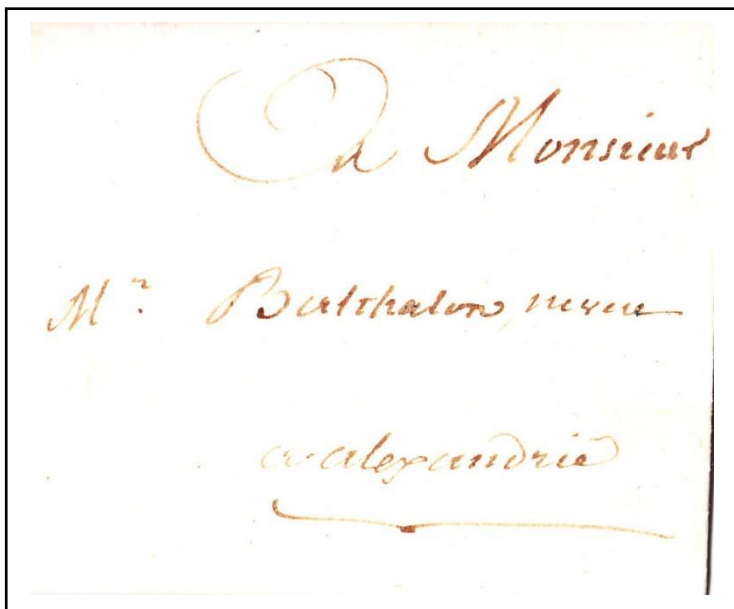 A Monsieur
Mr. Berthalon, neveu
a alexandrie